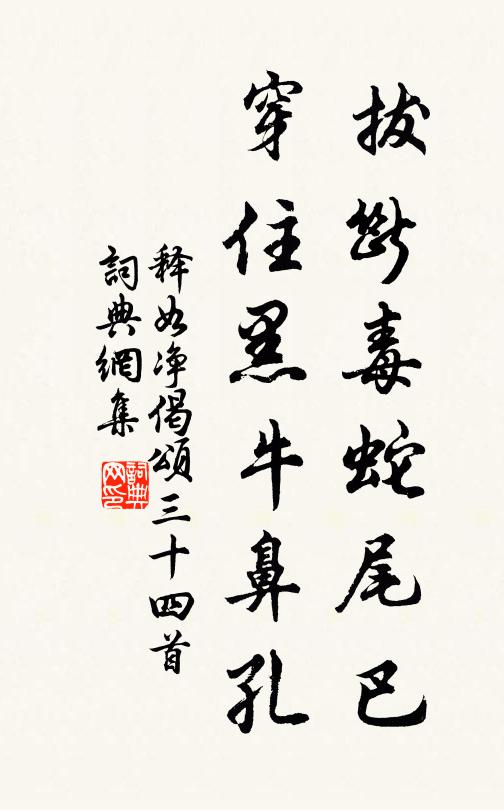 拔斷毒蛇尾巴
穿住黑牛鼻孔
释如净偈頌三十四首
詞典網集
詞典网印